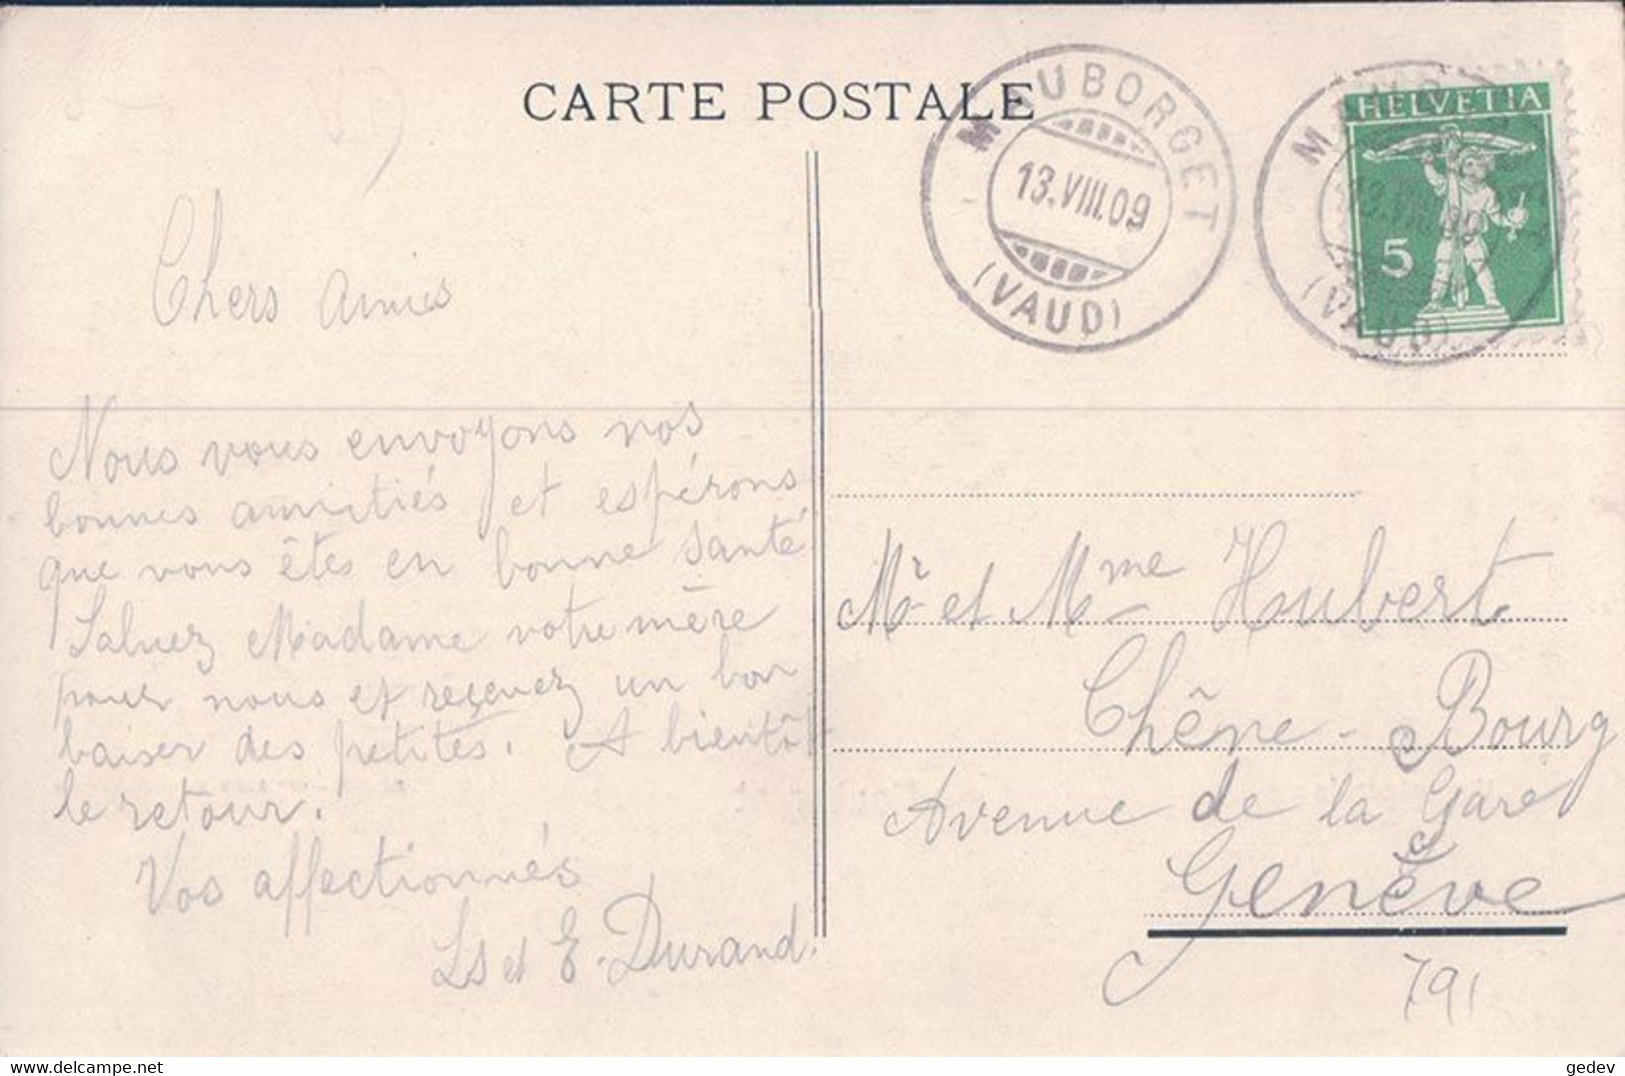 CARTE POSTALE
MAUBORGET
13.VIII.09
(VAUD)
HELVETIA
5
(VAUD)
Chers amis
Nous vous envoyons nos
bonnes amitiés et espérons
que vous êtes en bonne santé
Saluez Madame votre mère
pour nous et reçevez un bon
baiser des petites. A bientôt
le retour.
Vos affectionnés
Ls et E. Durand.
Mr et Mme Hubert
Chêne-Bourg
Avenue de la Gare
Genève
791
https://www.delcampe.net
gedev